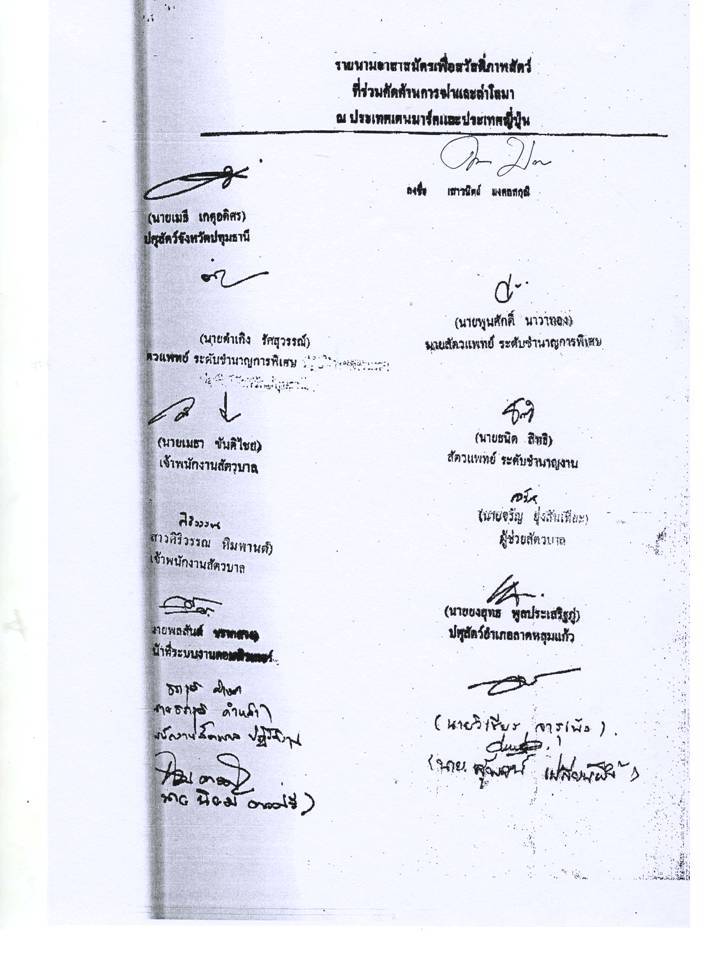 รายนามอาสาสมัครเพื่อสวัสดิ์ภาพสัตว์
ที่ร่วมคัดค้านการฆ่าและล่าโลมา
ณ ประเทศเดนมาร์คและประเทศญี่ปุ่น
ลงชื่อ เสาวนิตย์ มงคลสกุณี
(นายเมธี เกตุอดิศร)
ปศุสัตว์จังหวัดปทุมธานี
(นายดำเกิง รัศสุวรรณ์)
ตวแพทย์ ระดับชำนาญการพิเศษ
(นายพูนศักดิ์ นาวาทอง)
นายสัตวแพทย์ ระดับชำนาญการพิเศษ
(นายเมธา ขันติไชย)
เจ้าพนักงานสัตวบาล
(นายธนิต สิทธิ)
สัตวแพทย์ ระดับชำนาญงาน
ศิริวรรณ
สาวศิริวรรณ หิมพานต์)
เจ้าพนักงานสัตวบาล
จรัญ
(นายจรัญ
ผู้ช่วยสัตวบาล
นายพลสันต์
น้าที่ระบบงานคอมพิวเตอร์
(นายยงยุทธ พูลประเสริฐภู่)
ปศุสัตว์อำเภอลาดหลุมแก้ว
(นายวิเชียร จารุเพ็ง)
(นาย
นาย นิยม